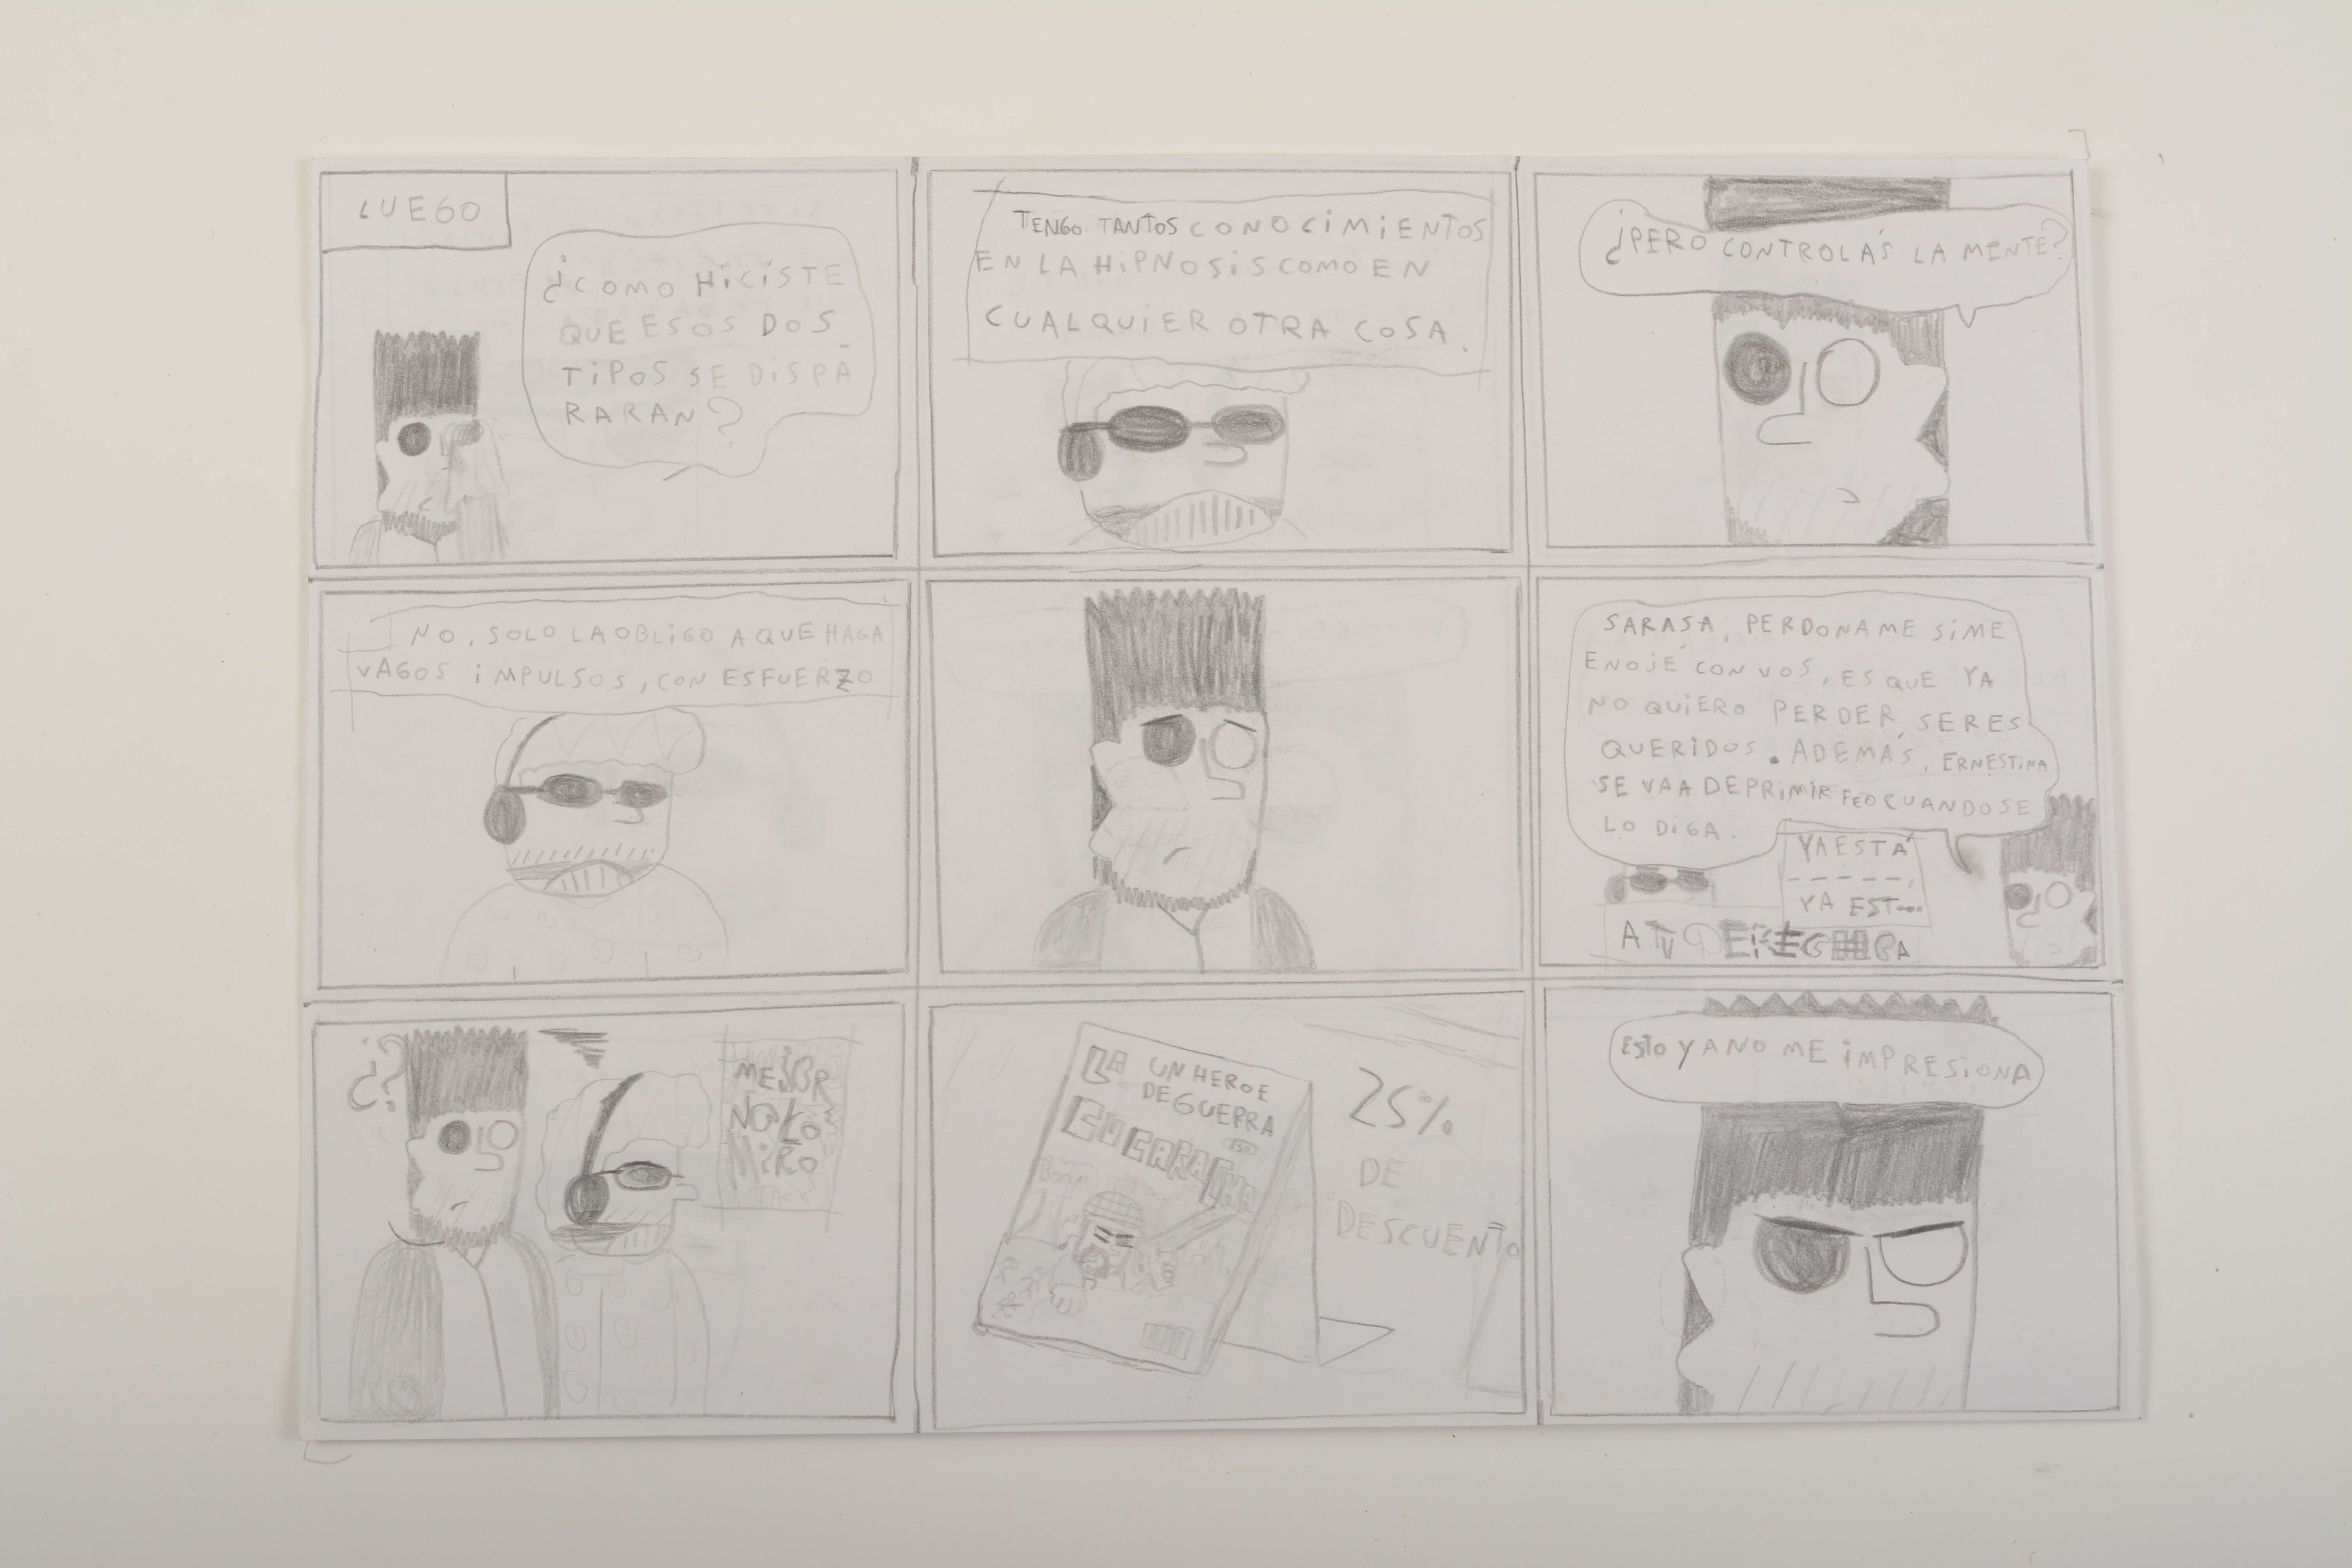 LUEGO
¿COMO HICISTE
QUE ESOS DOS
TIPOS SE DISPA
RARAN?
TENGO TANTOS CONOCIMIENTOS
EN LA HIPNOSIS COMO EN
CUALQUIER OTRA COSA.
¿PERO CONTROLÁS LA MENTE?
NO, SOLO LA OBLIGO A QUE HAGA
VAGOS IMPULSOS, CON ESFUERZO
SARASA, PERDONAME SI ME
ENOJÉ CON VOS, ES QUE YA
NO QUIERO PERDER SERES
QUERIDOS. ADEMÁS, ERNESTINA
SE VA A DEPRIMIR FEO CUANDO SE
LO DIGA.
YA ESTÁ
YA EST...
A TU
¿?
MEJOR
NO LO
MIRO
LA
UN HEROE
DE GUERRA
CUCARACHA
BOOM
25%
DE
DESCUENTO
ESTO YA NO ME IMPRESIONA